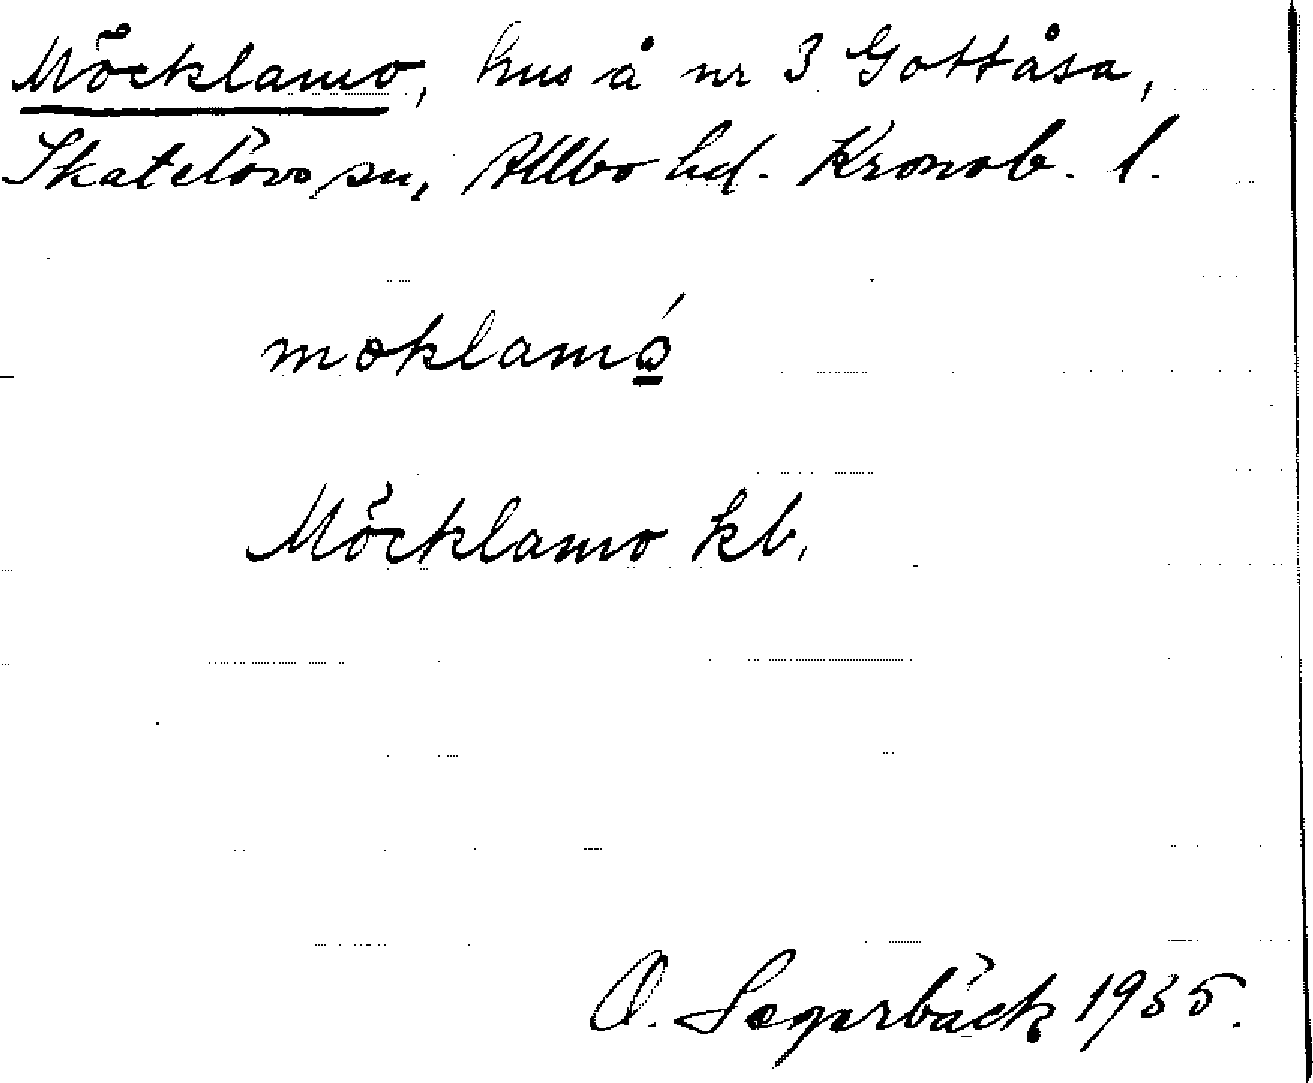 Möcklamo, hus å nr 3 Gottåsa,
Skatelövs sn, Allbo hd. Kronob. l.
moklamó
Möcklamo kb.
O. Segerbäck 1935.